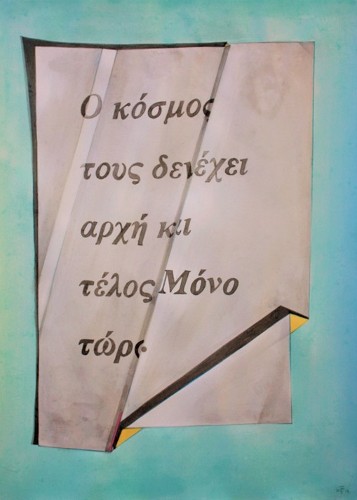 Ο κόσμος
τους δεν έχει
αρχή και
τέλος Μόνο
τώρα